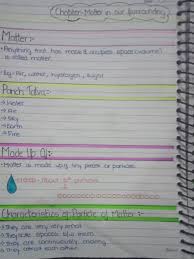 Chapter: Matter in our Surrounding
Matter:-
Everything that has mass & occupies space (volume)
is called matter.
Eg:- Air, water, hydrogen,
Panch Tatva:-
Water
Air
Sky
Earth
Fire
Made Up Of:-
Matter is made up of tiny particles.
Characteristics of Particles of Matter:-
They are very very small
They have spaces b/w them
They are continuously moving
They attract each other